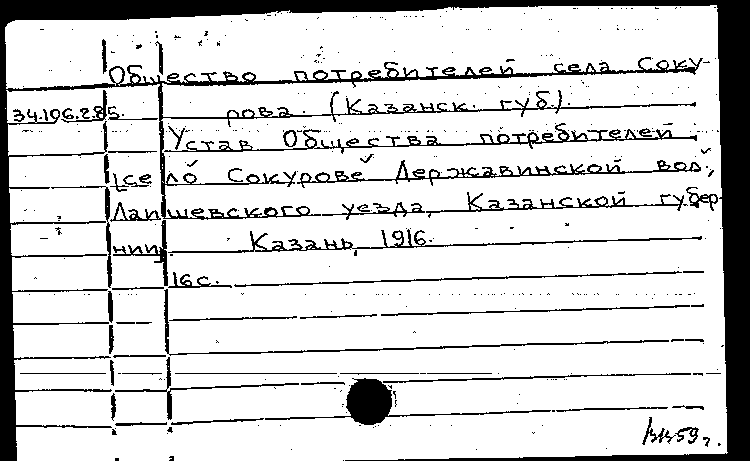 Общество потребителей села Соку-
34.106.285. рова. (Казанск. губ.).
Устав Общества потребителей
[село Сокурове Державинской вол.,
Лаишевского уезда, Казанской губер-
нии] Казань, 1916.
16 с.